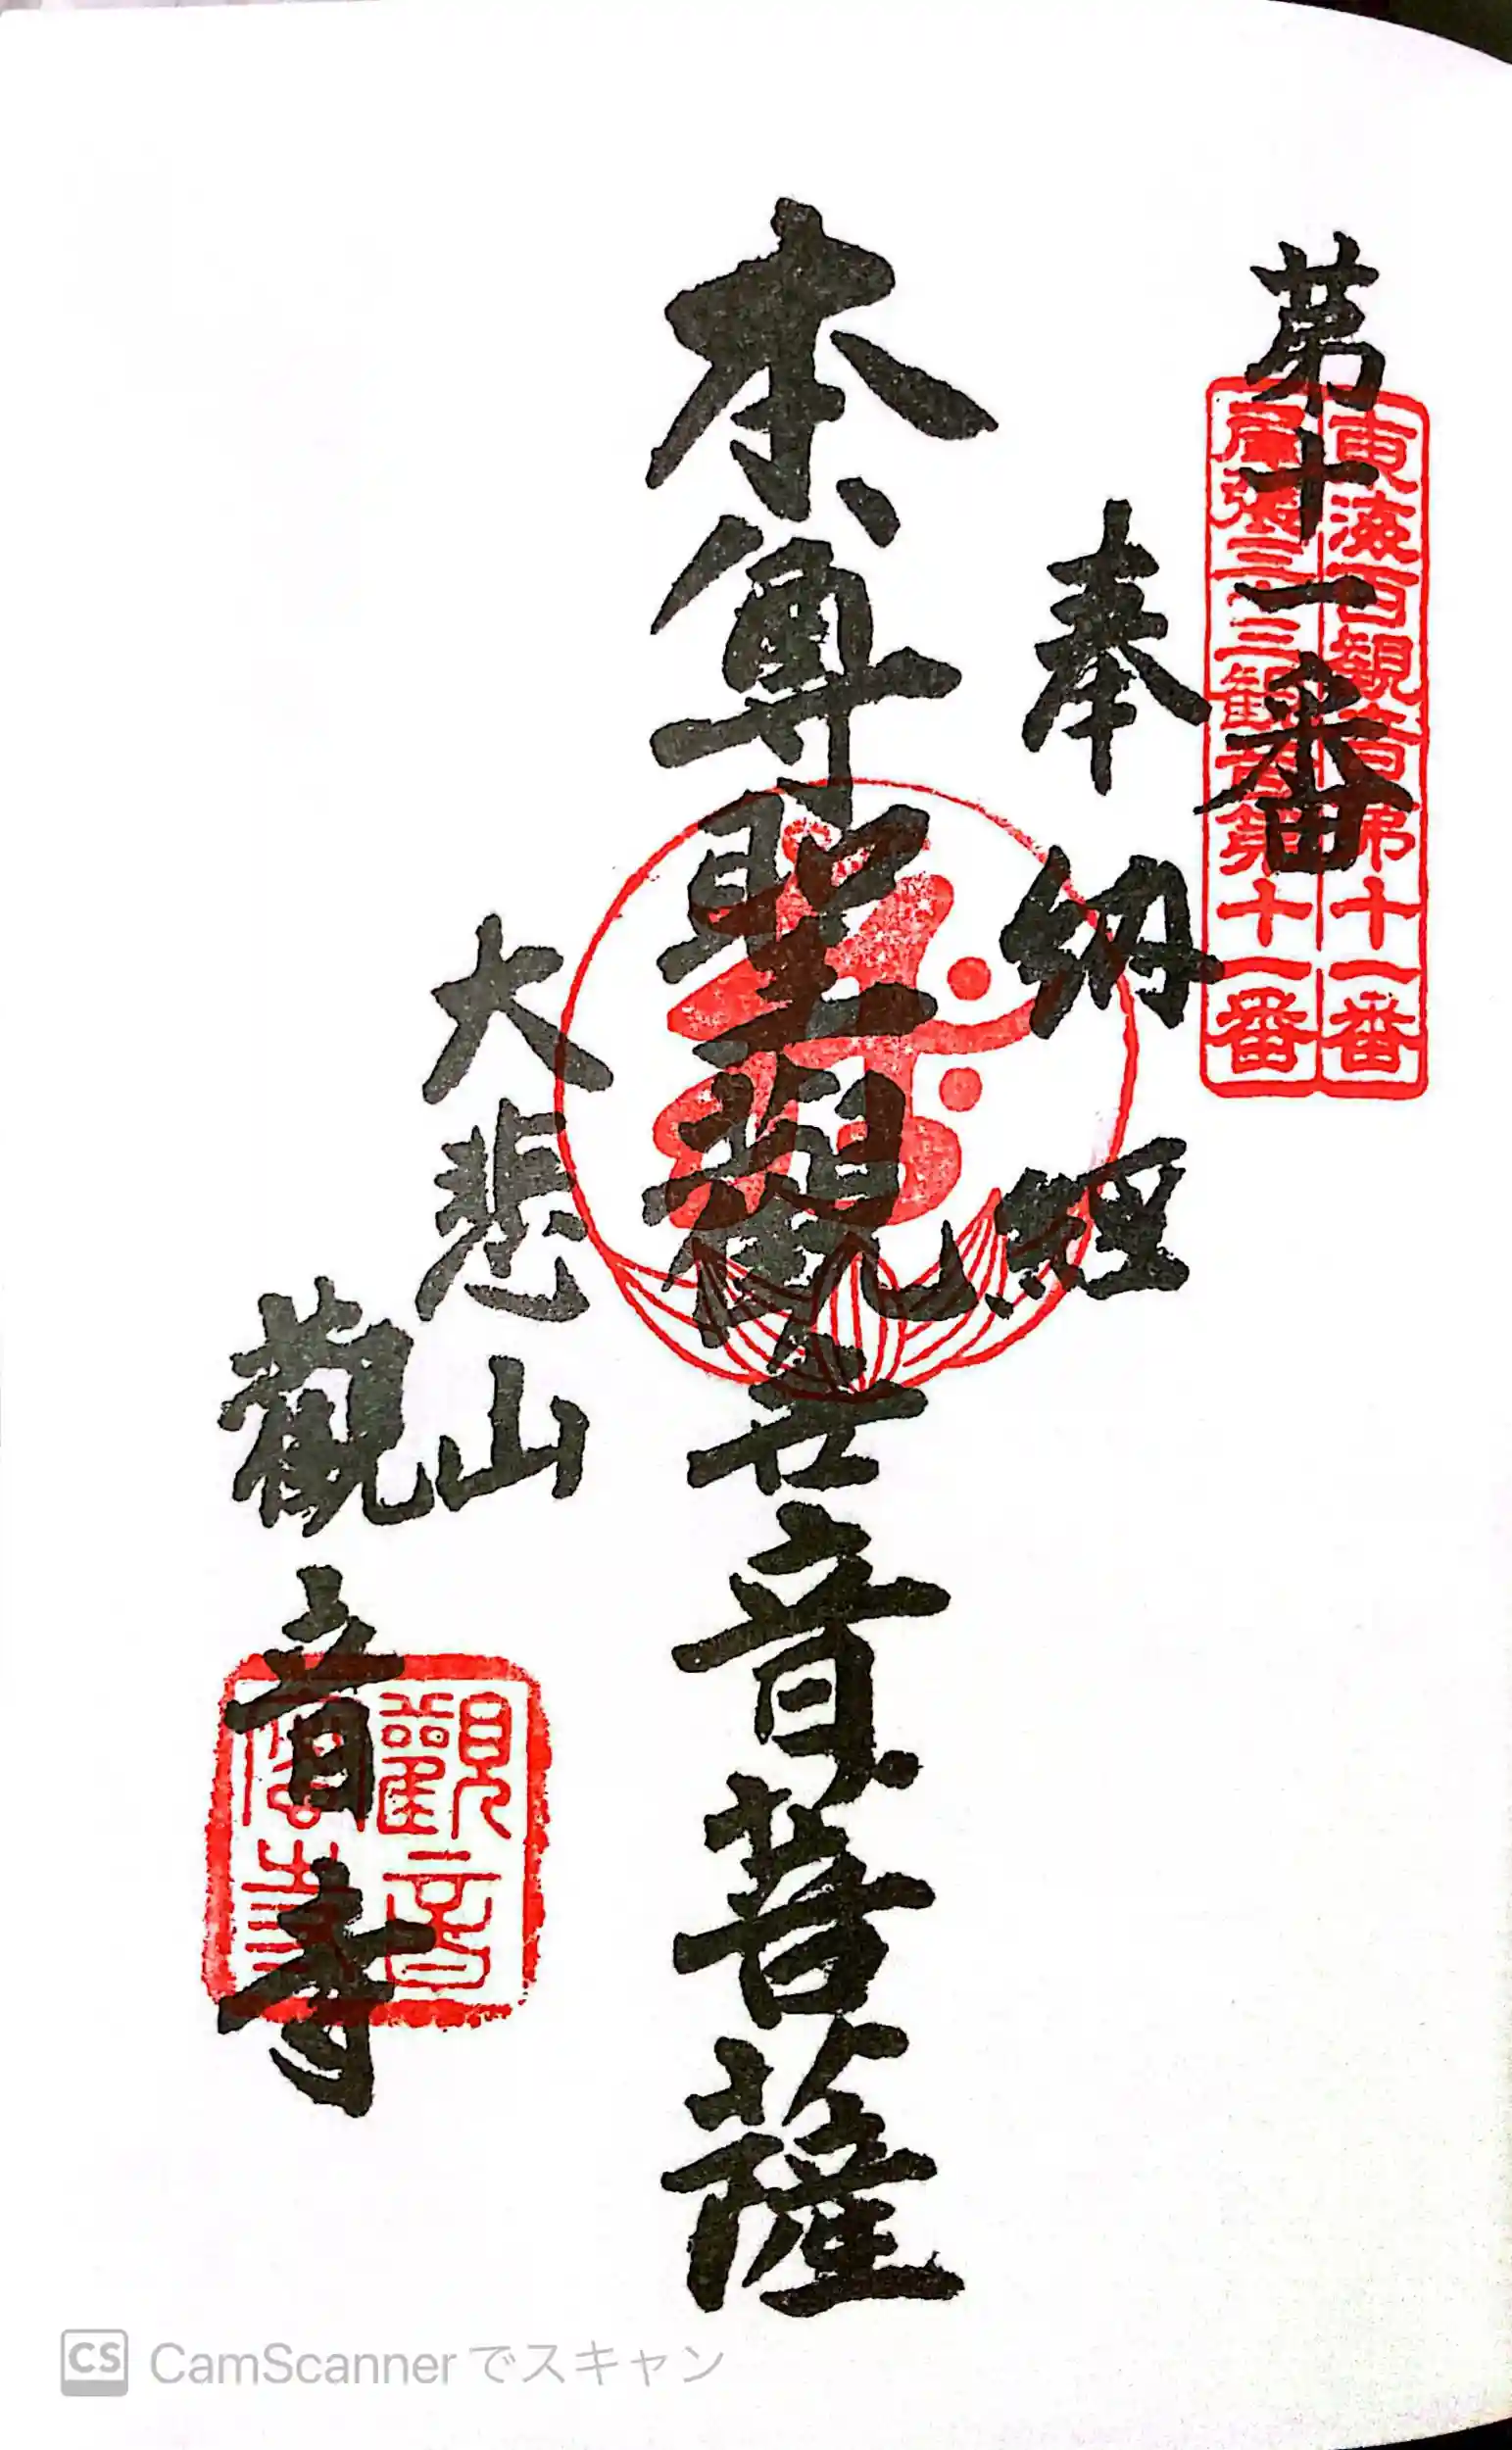 第十一番
東海百観音第十一番
尾張三十三観音第十一番
奉納経
本尊聖観世音菩薩
大悲山
觀音寺
觀音
CS CamScannerでスキャン